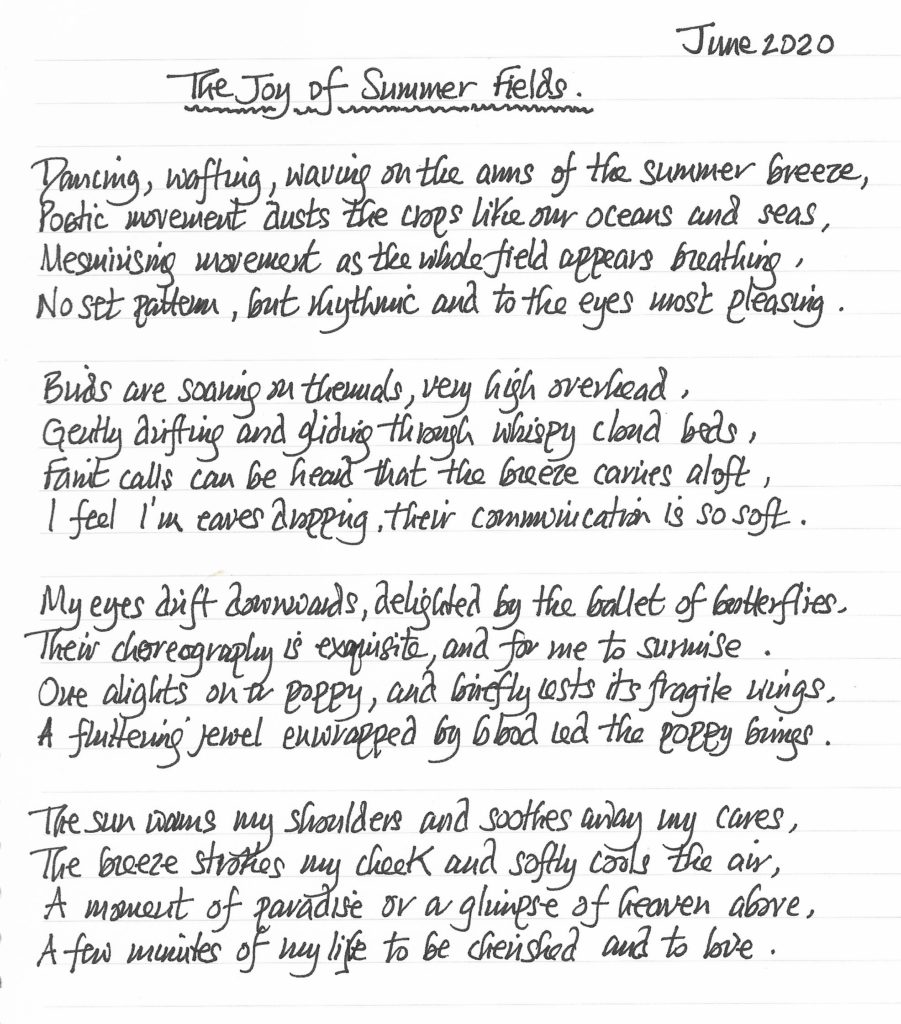 June 2020
The Joy of Summer Fields.
Dancing, wafting, waving on the arms of the summer breeze,
Poetic movement dusts the crops like our oceans and seas,
Mesmirising movement as the whole field appears breathing,
No set pattern, but rhythmic and to the eyes most pleasing.
Birds are soaring on thermals, very high overhead,
Gently drifting and gliding through whispy cloud beds,
Faint calls can be heard that the breeze carries aloft,
I feel I'm eaves dropping, their communication is so soft.
My eyes drift downwards, delighted by the ballet of butterflies.
Their choreography is exquisite, and for me to surmise.
One alights on a poppy, and briefly rests its fragile wings,
A fluttering jewel enwrapped by blood red the poppy brings.
The sun warms my shoulders and soothes away my cares,
The breeze strokes my cheek and softly cools the air,
A moment of paradise or a glimpse of heaven above,
A few minutes of my life to be cherished and to love.